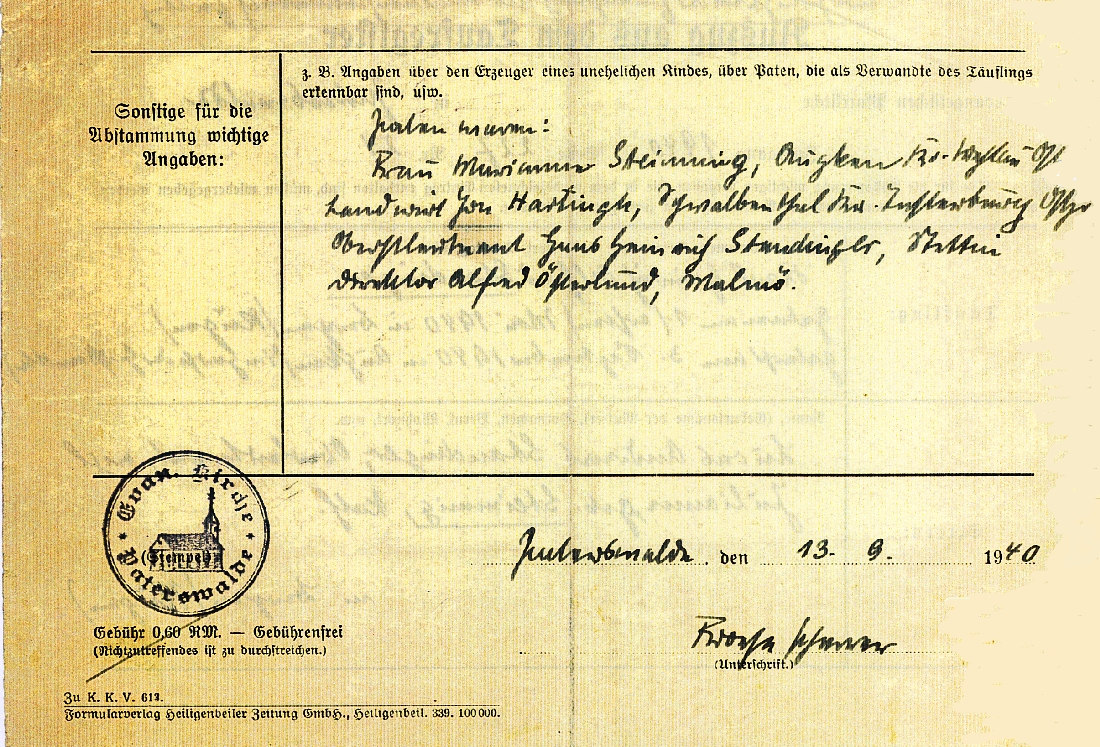 z. B. Angaben über den Erzeuger eines unehelichen Kindes, über Paten, die als Verwandte des Täuflings
erkennbar sind, usw.
Sonstige für die
Abstammung wichtige
Angaben:
Paten waren:
Frau Marianne Steinning, Augken Kr. Wehlau Ost
Landwirt Hartingh, Schwalbenthal Kr. Insterburg Ostpr
Oberstleutnant Hans Heinrich Staudinger, Stettin
Direktor Alfred Österlund, Malmö.
Evan. Kirche
(Stempel)
Paterswalde
Paterswalde, den 13. 9. 1940
Gebühr 0,60 RM. — Gebührenfrei
(Nichtzutreffendes ist zu durchstreichen.)
Pfarrer
(Unterschrift.)
Zu K. K. V. 613.
Formularverlag Heiligenbeiler Zeitung GmbH., Heiligenbeil. 339. 100000.